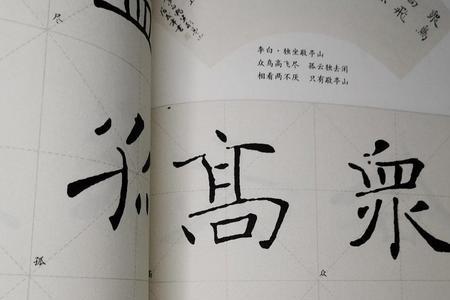 李白·独坐敬亭山
众鸟高飞尽 孤云独去闲
相看两不厌 只有敬亭山
眾鳥
飛
尽
髙
眾
孤
众